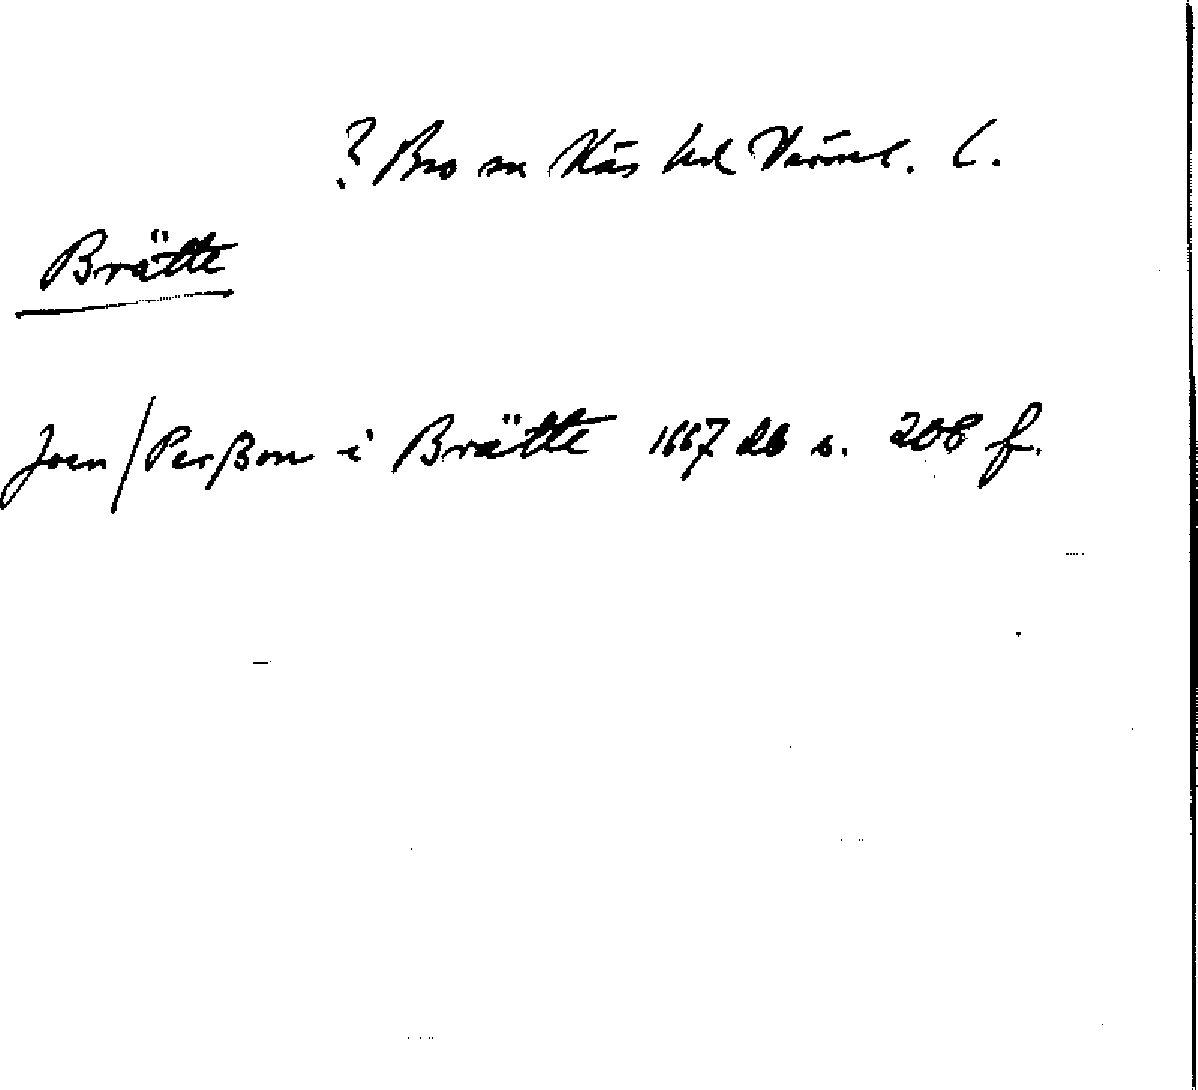 ? Bro sn Näs hd Värml. l.
Brätte
Joen / Perßon i Brätte 1667 db s. 208 f.